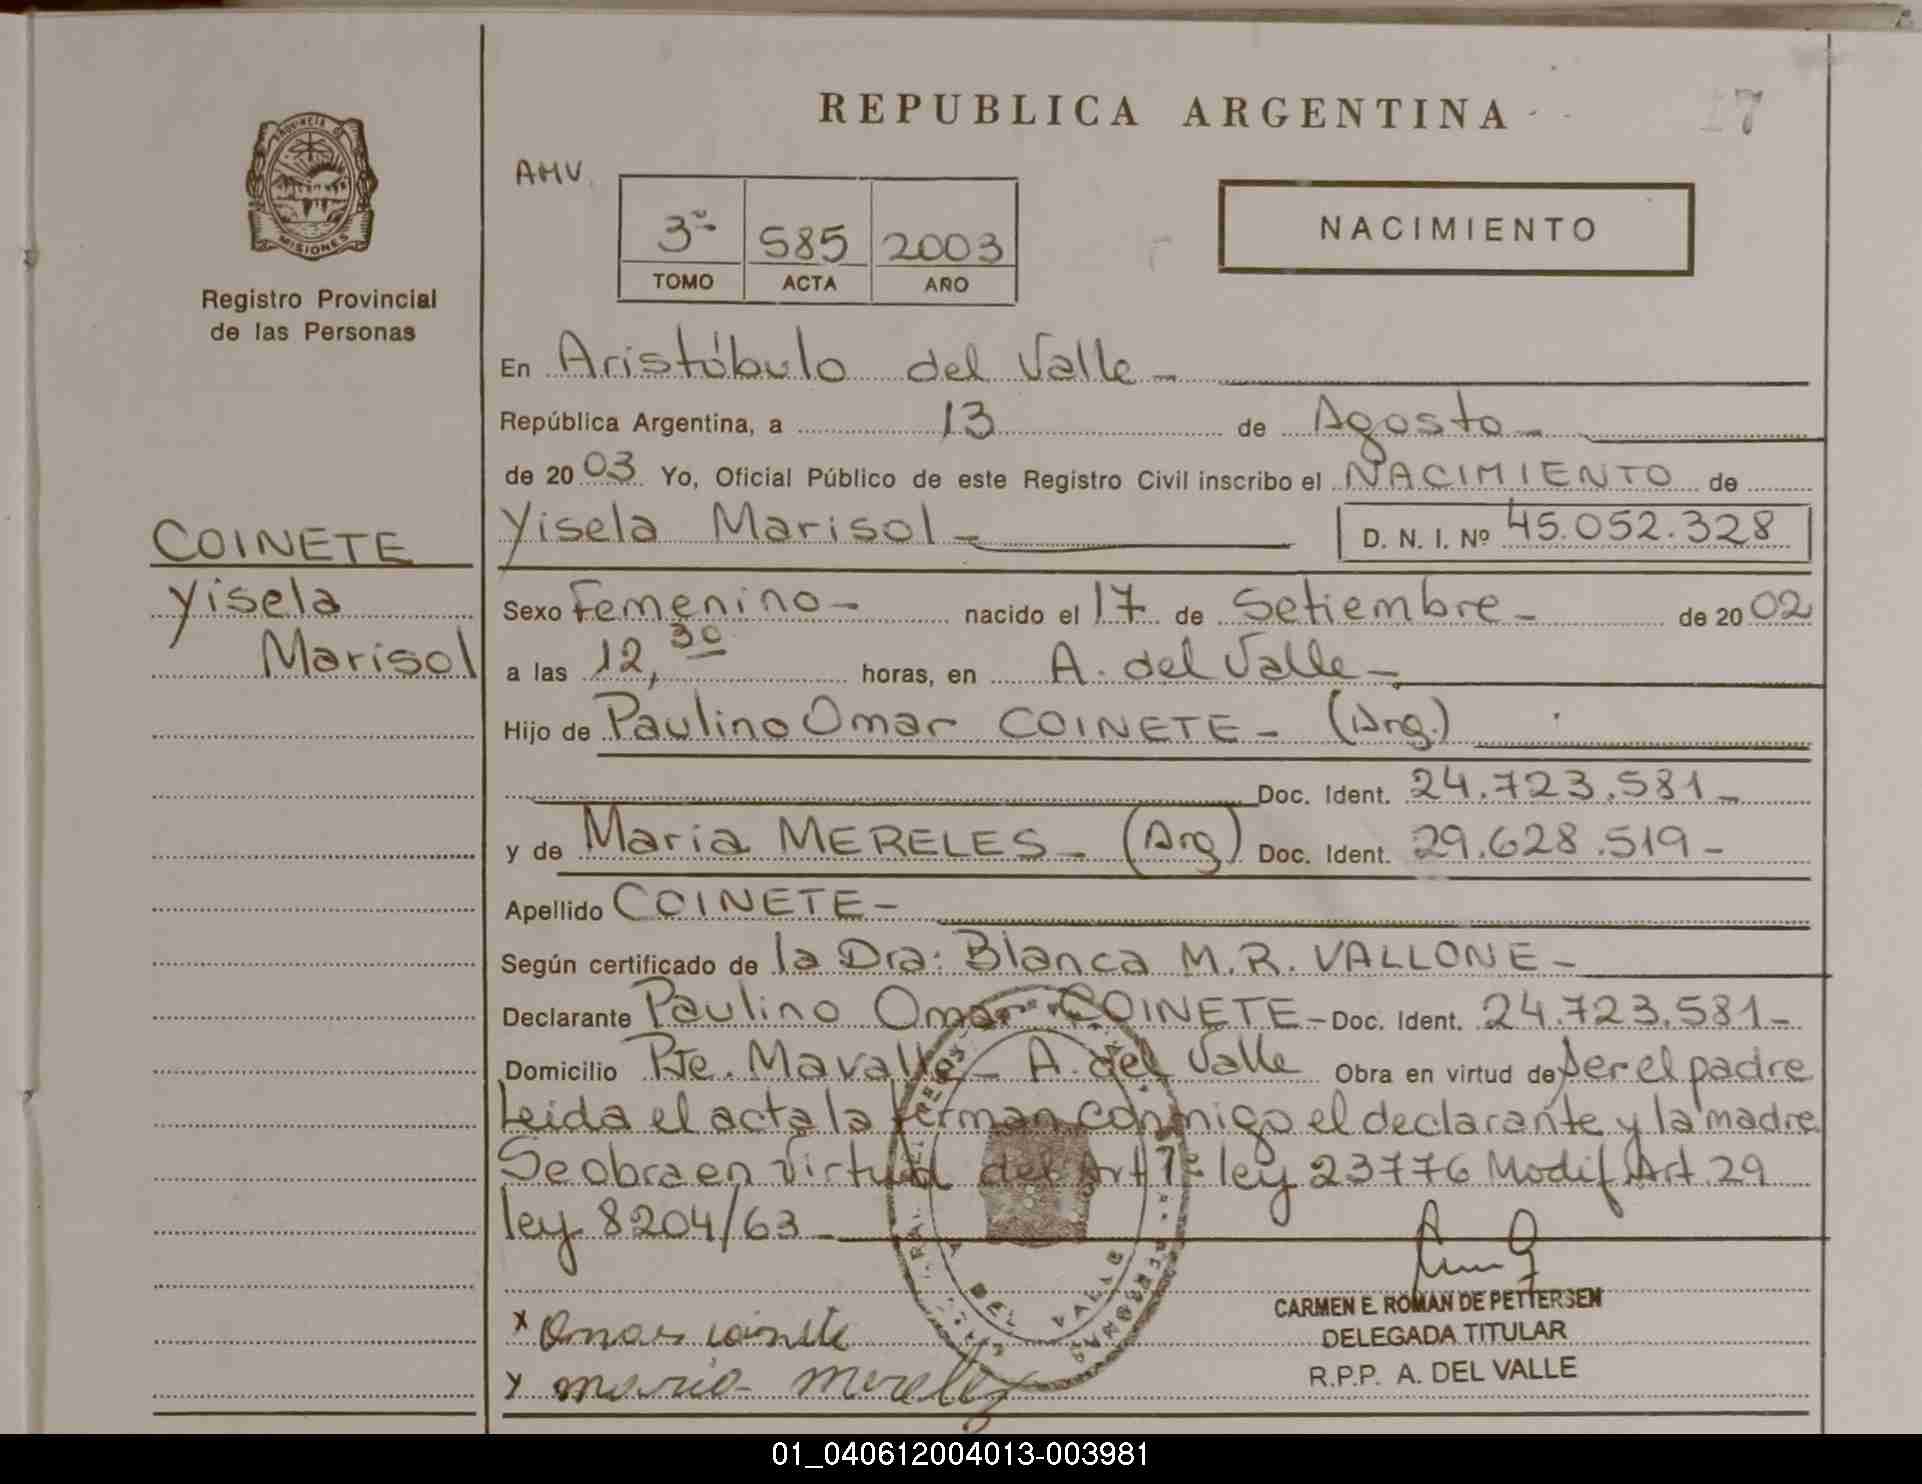 REPUBLICA ARGENTINA
17
PROVINCIA DE
MISIONES
Registro Provincial
de las Personas
AMV
3º 585 2003
TOMO ACTA AÑO
NACIMIENTO
En Aristóbulo del Valle -
República Argentina, a 13 de Agosto -
de 2003 Yo, Oficial Público de este Registro Civil inscribo el NACIMIENTO de
Yisela Marisol - D. N. I. Nº 45.052.328
COINETE
Yisela
Marisol
Sexo Femenino - nacido el 17 de Setiembre - de 2002
a las 12,30 horas, en A. del Valle -
Hijo de Paulino Omar COINETE - (Arg.)
Doc. Ident. 24.723.581 -
y de Maria MERELES - (Arg) Doc. Ident. 29.628.519 -
Apellido COINETE -
Según certificado de la Dra: Blanca M.R. VALLONE -
Declarante Paulino Omar COINETE - Doc. Ident. 24.723.581 -
Domicilio Pje. Mavalle - A. del Valle Obra en virtud de ser el padre
Leida el acta la ferman conmigo el declarante y la madre
Se obra en virtud del Art 1º ley 23776 Modif Art. 29
ley 8204/63 -
x Omar Coinete
CARMEN E. ROMAN DE PETTERSEN
DELEGADA TITULAR
R.P.P. A. DEL VALLE
x maria mereles
01_040612004013-003981